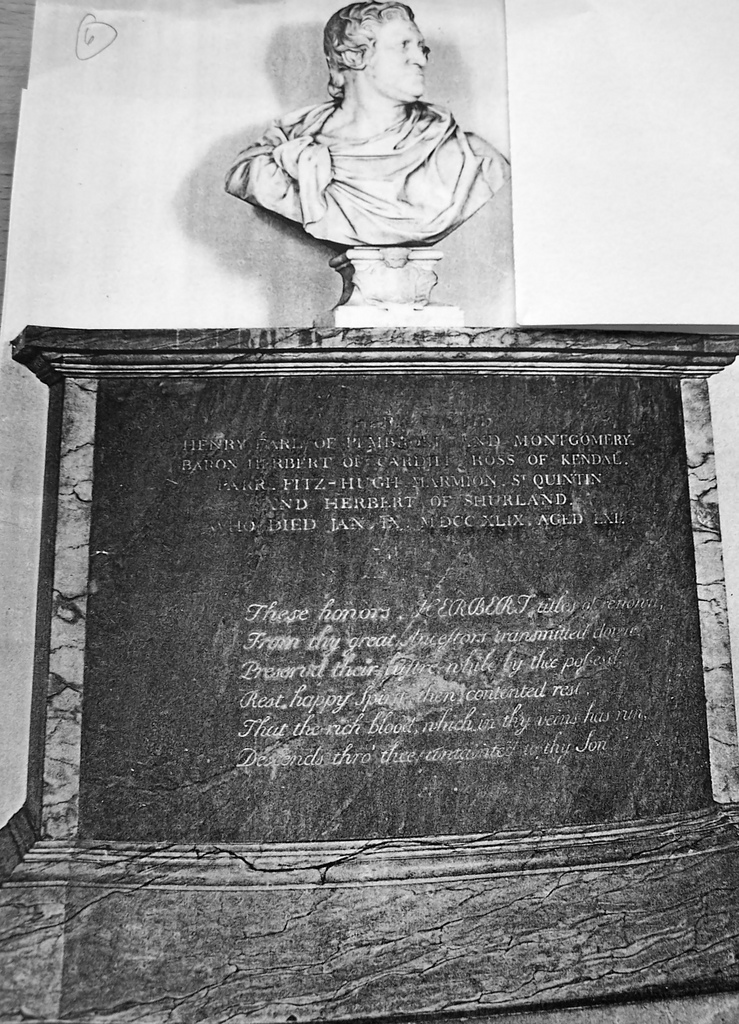 6
HENRY EARL OF PEMBROKE AND MONTGOMERY,
BARON HERBERT OF CARDIFF, ROSS OF KENDAL,
PARR, FITZ-HUGH, MARMION, St QUINTIN
AND HERBERT OF SHURLAND,
WHO DIED JAN. IX. MDCCXLIX, AGED LXI.
These honors, HERBERT, titles of renown,
From thy great Ancestors transmitted down,
Preserv'd their lustre, while by thee posses'd,
Rest, happy Spirit, then contented rest,
That the rich blood, which in thy veins has run,
Descends thro' thee, untainted to thy Son